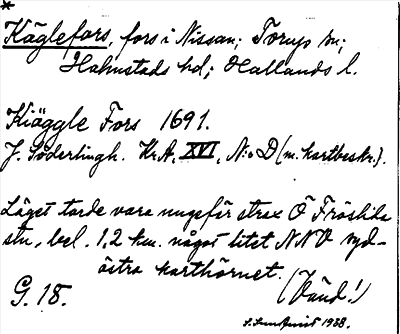 *
Käglefors, fors i Nissan; Torup sn;
Halmstads hd; Hallands l.
Kiäggle Fors 1691.
J. Söderlingh. Kr.A. XVI, N:o D (m. kartbeskr.).
Läget torde vara ungefär strax Ö Fröslida
stn, bel. 1,2 km. något litet NNV syd-
östra karthörnet.
G. 18. (Vänd!)
1938